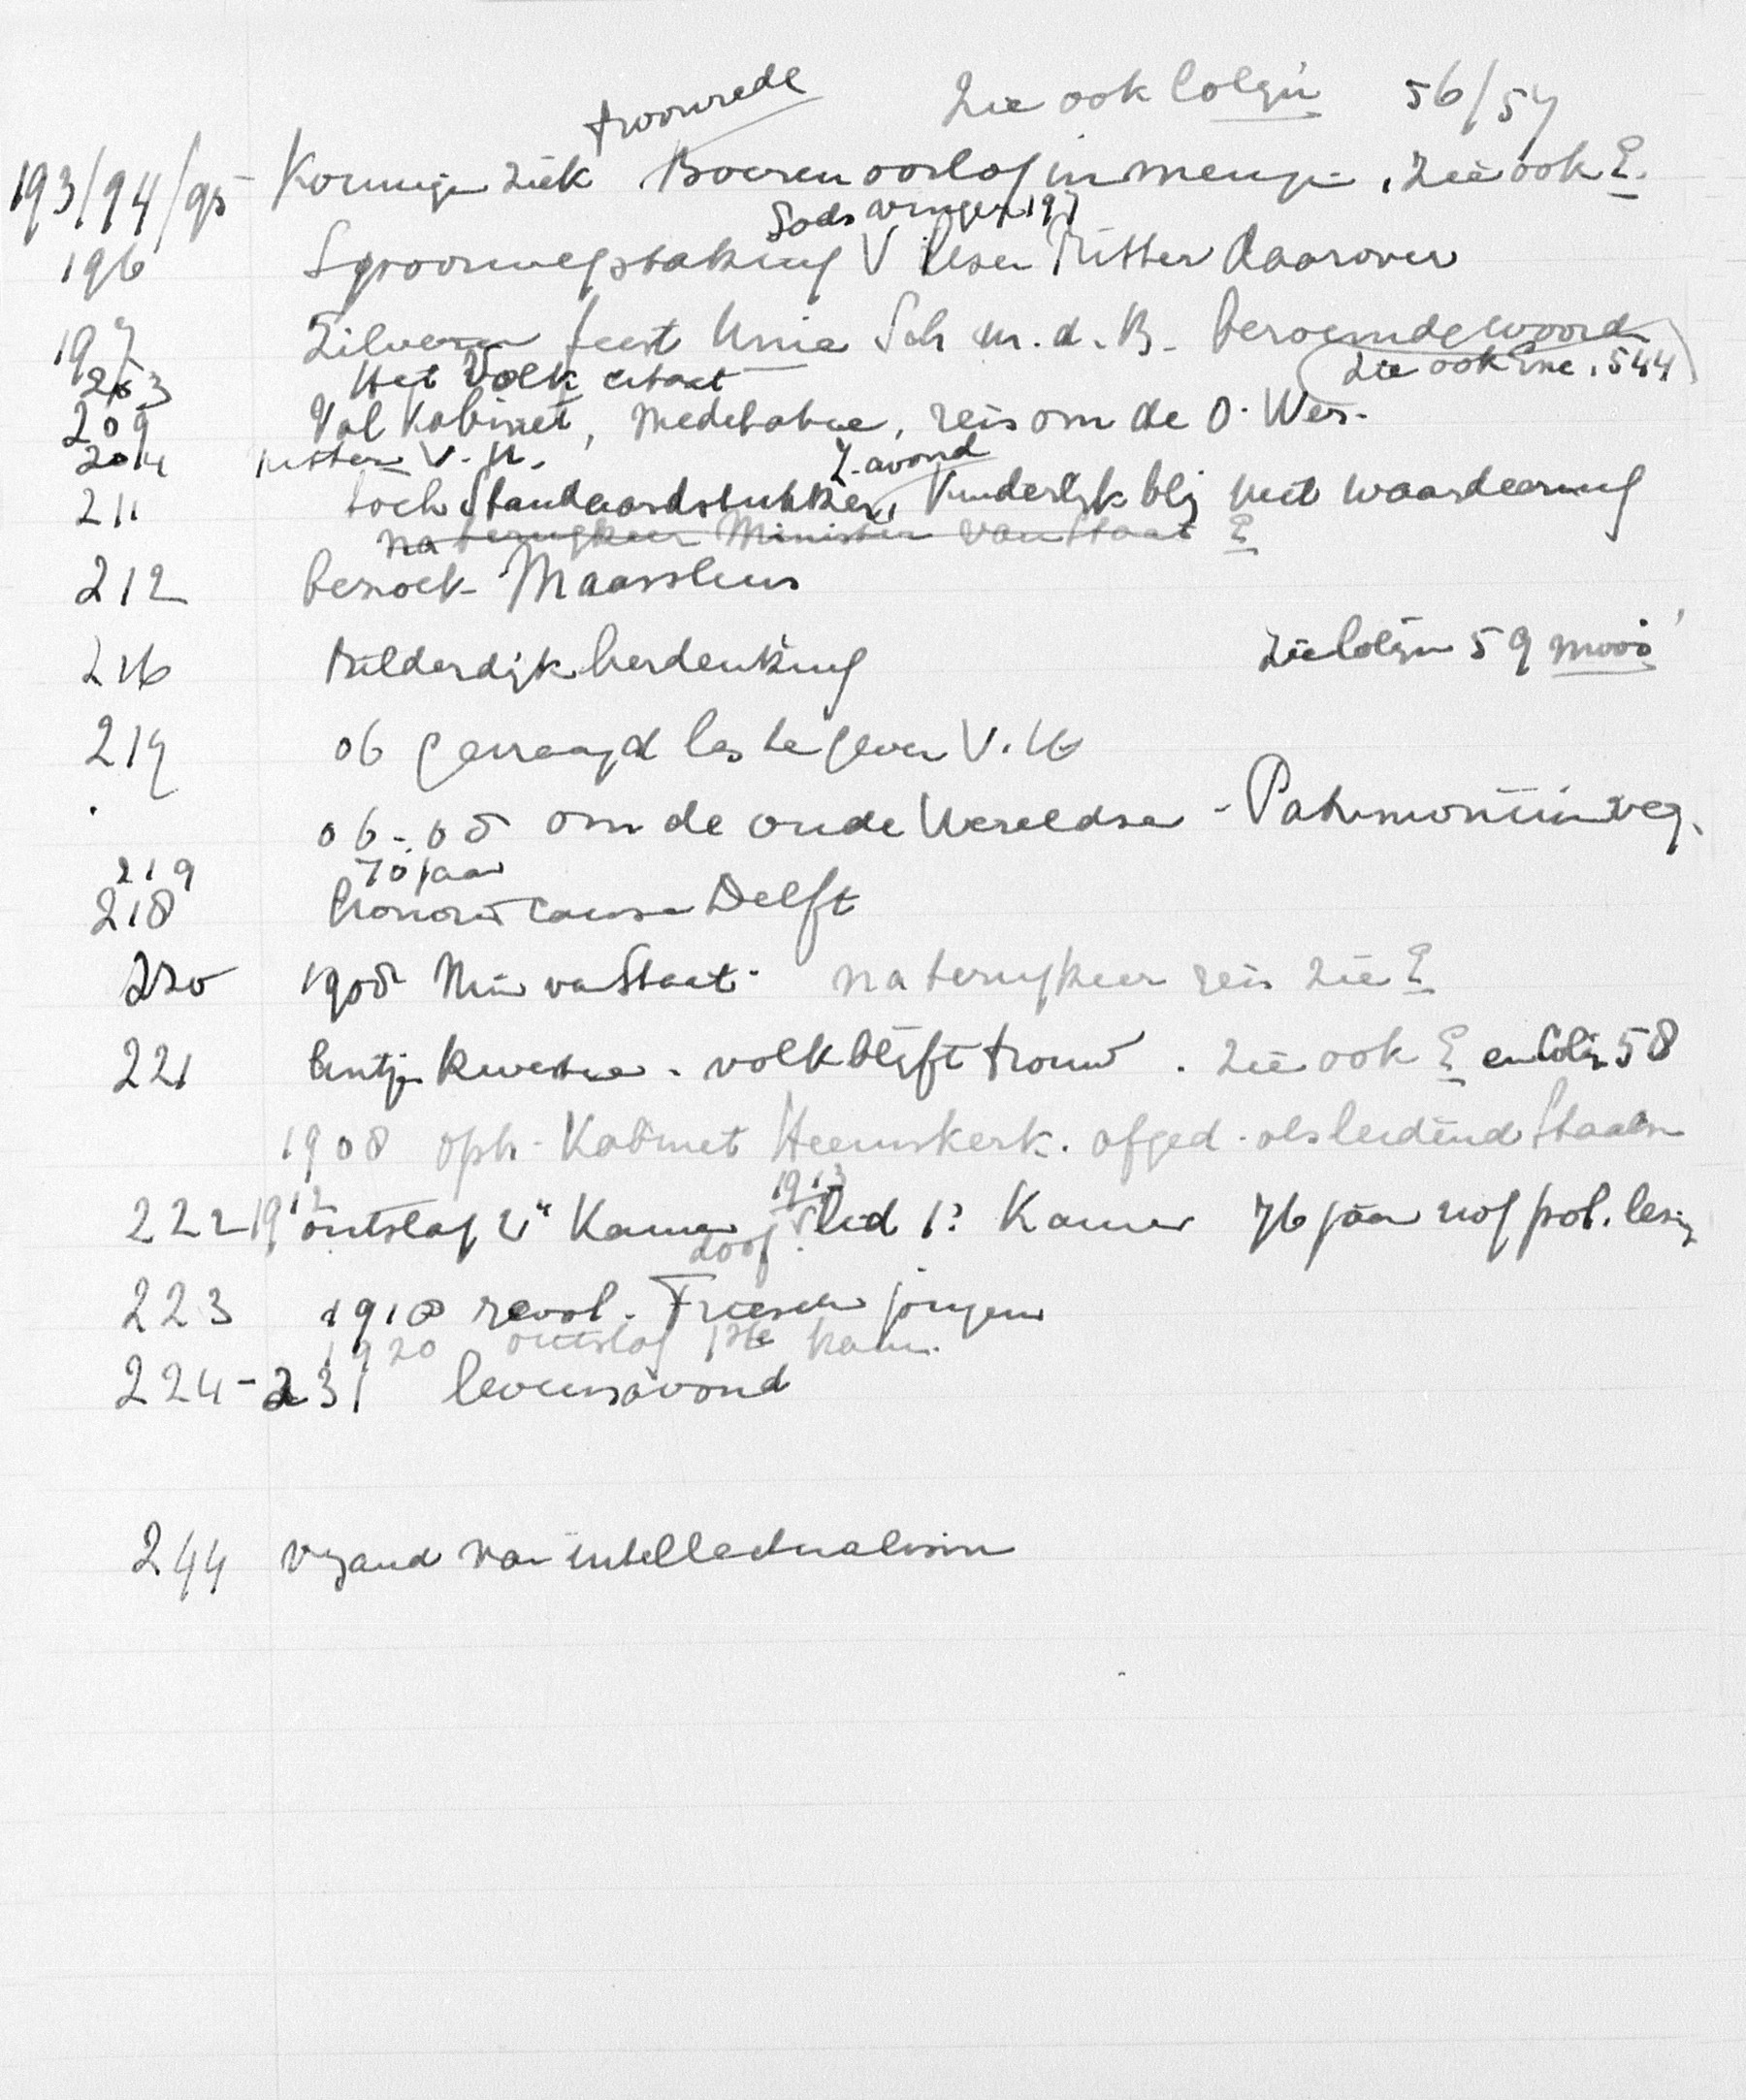 troonrede zie ook Colijn 56/57
193/94/95 Koningin ziek Boerenoorlog inmenging. zie ook E.
197
196 Spoorwegstaking V Ritter daarover
197 Zilveren feest Unie Sch m. d. B. beroemde woord
203 Het Volk citaat zie ook Enc. 544
209 Val Kabinet, Meditatie, reis om de O. Wer.
204 Ritter V. U. Z. avond
211 toch Standaardstukken, kinderlijk blij met waardeering
na terugkeer Minister van Staat E
212 bezoek Maassluis
216 Bilderdijk herdenking zie Colijn 59 mooi
219 06 gevraagd les te geven V. U
06-.08 om de oude Wereldzee - Patrimonium verg.
219 70 jaar
218 honoris causa Delft
220 1908 Min van Staat. na terugkeer reis zie E
221 lintjes kwestie. volk blijft trouw. zie ook E en Colijn 58
1908 opts. Kabinet Heemskerk. afged. als leidend Staatsm
1913
222 1912 ontslag 2e Kamer lid 1e Kamer 76 jaar nog pol. lezing
doof
223 1918 revol. Friesche jongen
1920 ontslag 1ste kam.
224-231 levensavond
244 vijand van intellectualisme